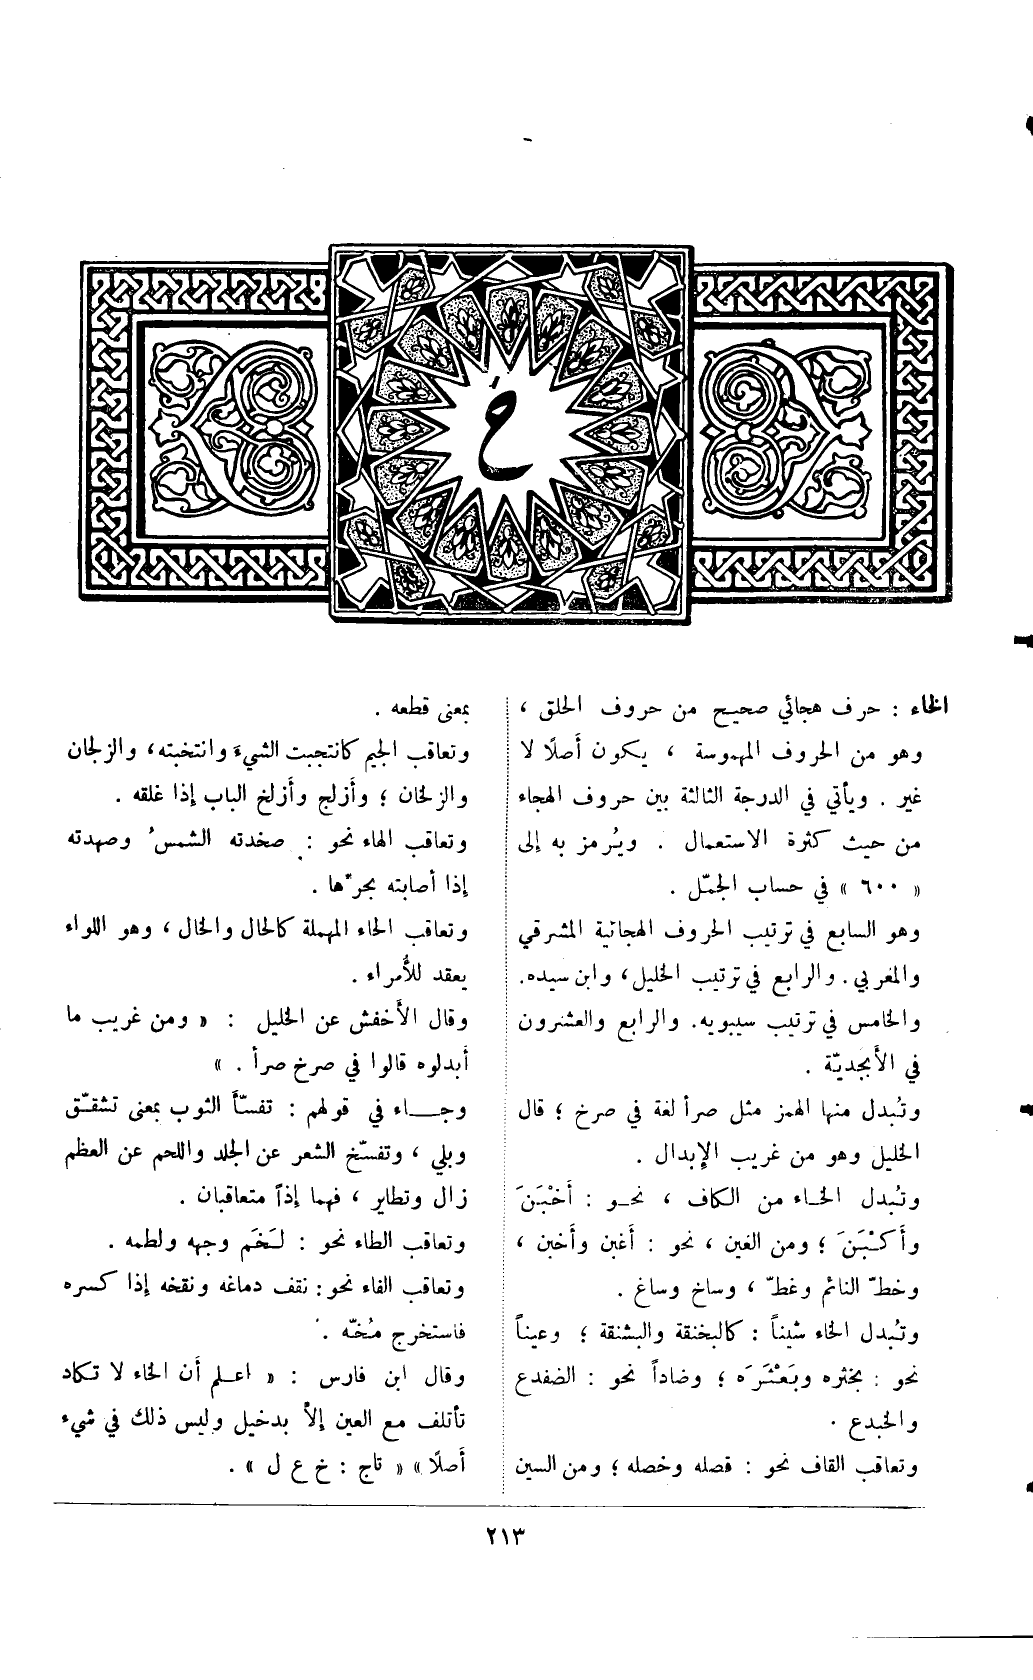 خ
الخاء : حرف هجائي صحيح من حروف الحلق ،
وهو من الحروف المهموسة ، يكون أصلًا لا
غير . ويأتي في الدرجة الثالثة بين حروف الهجاء
من حيث كثرة الاستعمال . ويُرمز به إلى
« ٦٠٠ » في حساب الجمّل .
وهو السابع في ترتيب الحروف الهجائية المشرقي
والمغربي . والرابع في ترتيب الخليل ، وابن سيده.
والخامس في ترتيب سيبويه. والرابع والعشرون
في الأبجديّة .
وتُبدل منها الهمز مثل صرأ لغة في صرخ ؛ قال
الخليل وهو من غريب الإبدال .
وتُبدل الخاء من الكاف ، نحو : أَخْبَنَ
وأَكْبَنَ ؛ ومن الغين ، نحو : أغبن وأخبن ،
وخطّ النائم وغطّ ، وساخ وساغ .
وتُبدل الخاء شيناً : كالبخنقة والبشنقة ؛ وعيناً
نحو : بخثره وبَعْثَرَه ؛ وضاداً نحو : الضفدع
والخبدع .
وتعاقب القاف نحو : قصله وخصله ؛ ومن السين
بمعنى قطعه .
وتعاقب الجيم كانتجبت الشيءَ وانتخبته ، والزلجان
والزلخان ؛ وأزلج وأزلخ الباب إذا غلقه .
وتعاقب الهاء نحو : صخدته الشمسُ وصهدته
إذا أصابته بحرّها .
وتعاقب الحاء المهملة كالخال والحال ، وهو اللواء
يعقد للأُمراء .
وقال الأخفش عن الخليل : « ومن غريب ما
أبدلوه قالوا في صرخ صرأ . »
وجاء في قولهم : تفسّأ الثوب بمعنى تشقّق
وبلي ، وتفسّخ الشعر عن الجلد واللحم عن العظم
زال وتطاير ، فهما إذاً متعاقبان .
وتعاقب الطاء نحو : لَخَم وجهه ولطمه .
وتعاقب الفاء نحو : نقف دماغه ونقخه إذا كسره
فاستخرج مُخّه .
وقال ابن فارس : « اعلم أن الخاء لا تكاد
تأتلف مع العين إلاّ بدخيل وليس ذلك في شيء
أصلًا » « تاج : خ ع ل » .
٢١٣